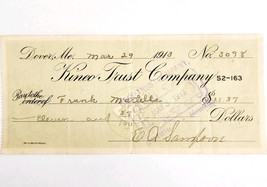 Dover, Me, Mar 29 1913 No. 3098
Kineo Trust Company 52-163
Pay to the order of Frank $11.37
Eleven and 37/100 Dollars
E. A. Sampson